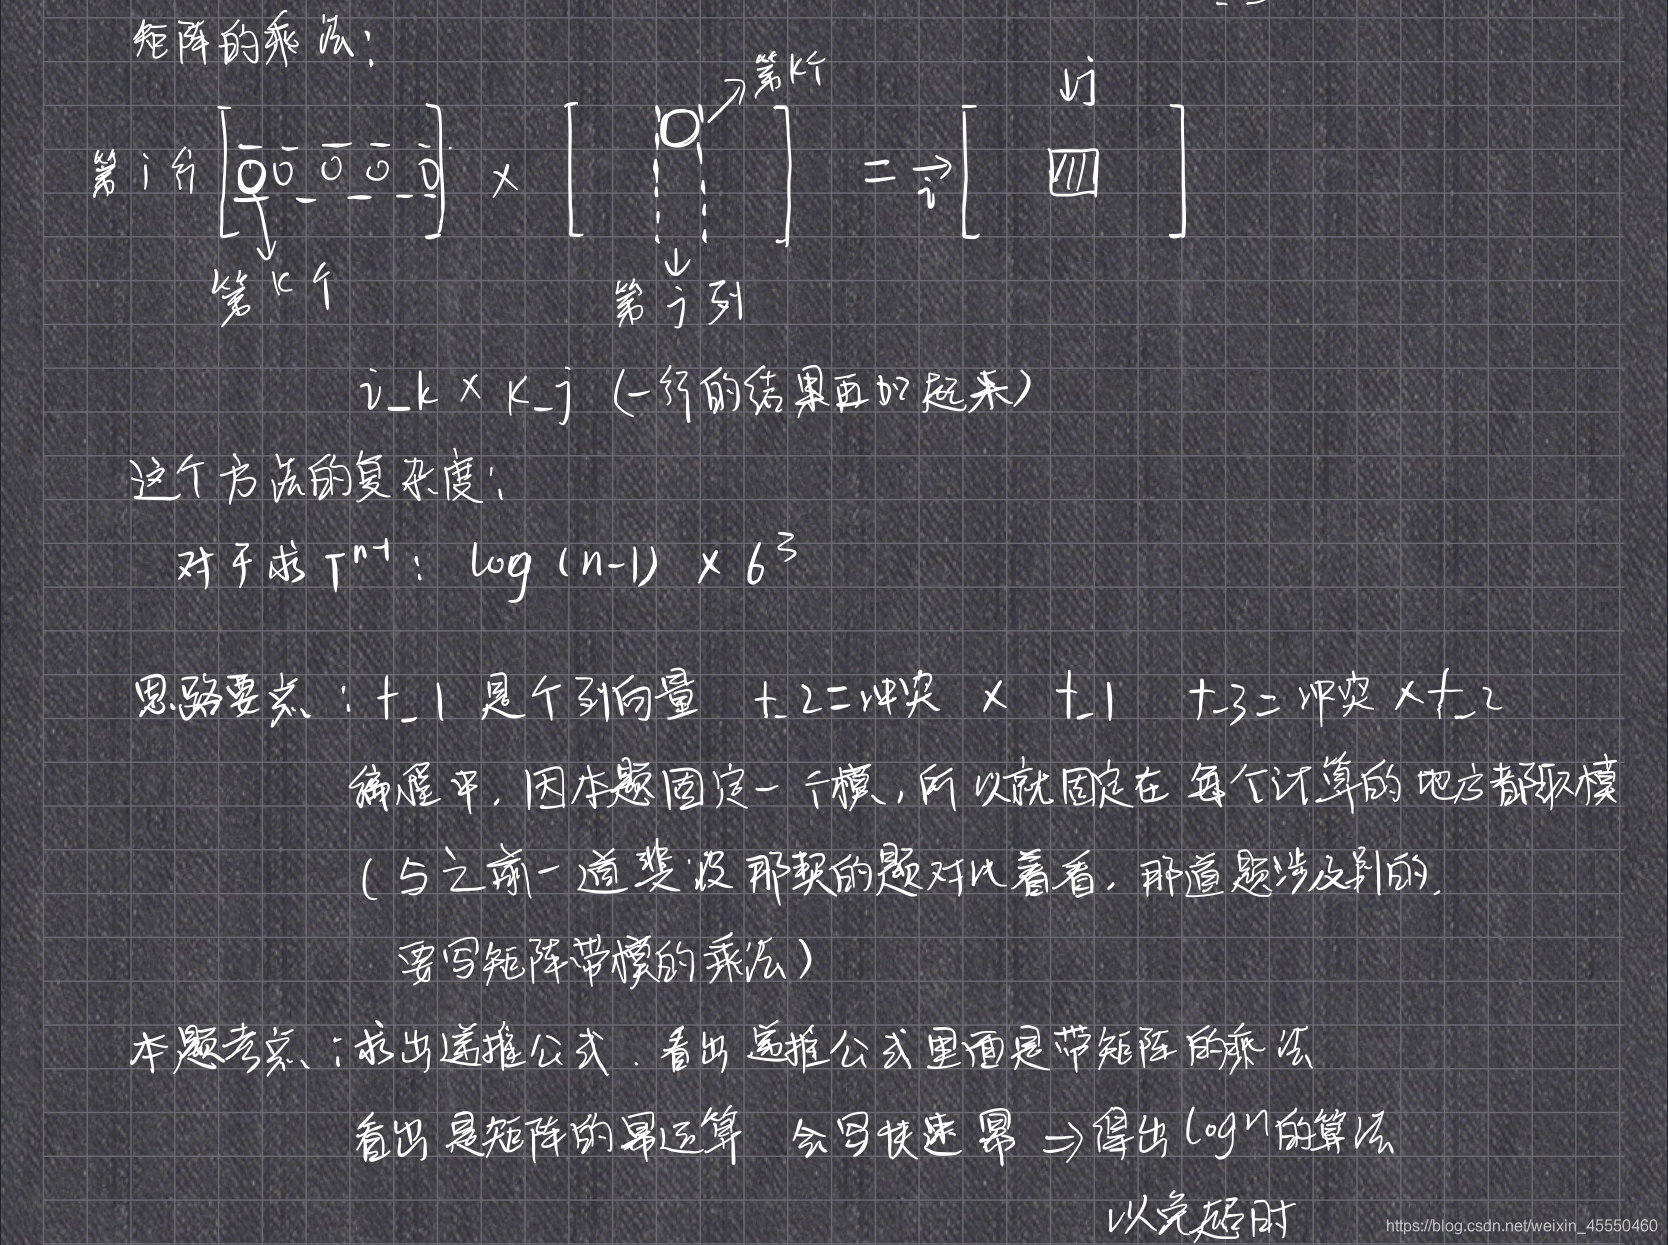 矩阵的乘法：
第k个
↓j
第 i 行 [ 0 0 0 0 0 ] × [ ] = → i [ ]
第 k 个
第 j 列
i_k × k_j (一行的结果再加起来)
这个方法的复杂度：
对于求 Tⁿ⁻¹ : log (n-1) × 6³
思路要点：t_1 是个列向量 t_2=冲突 × t_1 t_3=冲突 × t_2
编程中，因本题固定一个模，所以就固定在每个计算的地方都取模
(与之前一道斐波那契的题对比着看，那道题涉及到的，
要写矩阵带模的乘法)
本题考点：求出递推公式．看出递推公式里面是带矩阵的乘法
看出是矩阵的幂运算 会写快速幂 ⇒得出logn的算法
以免超时
https://blog.csdn.net/weixin_45550460